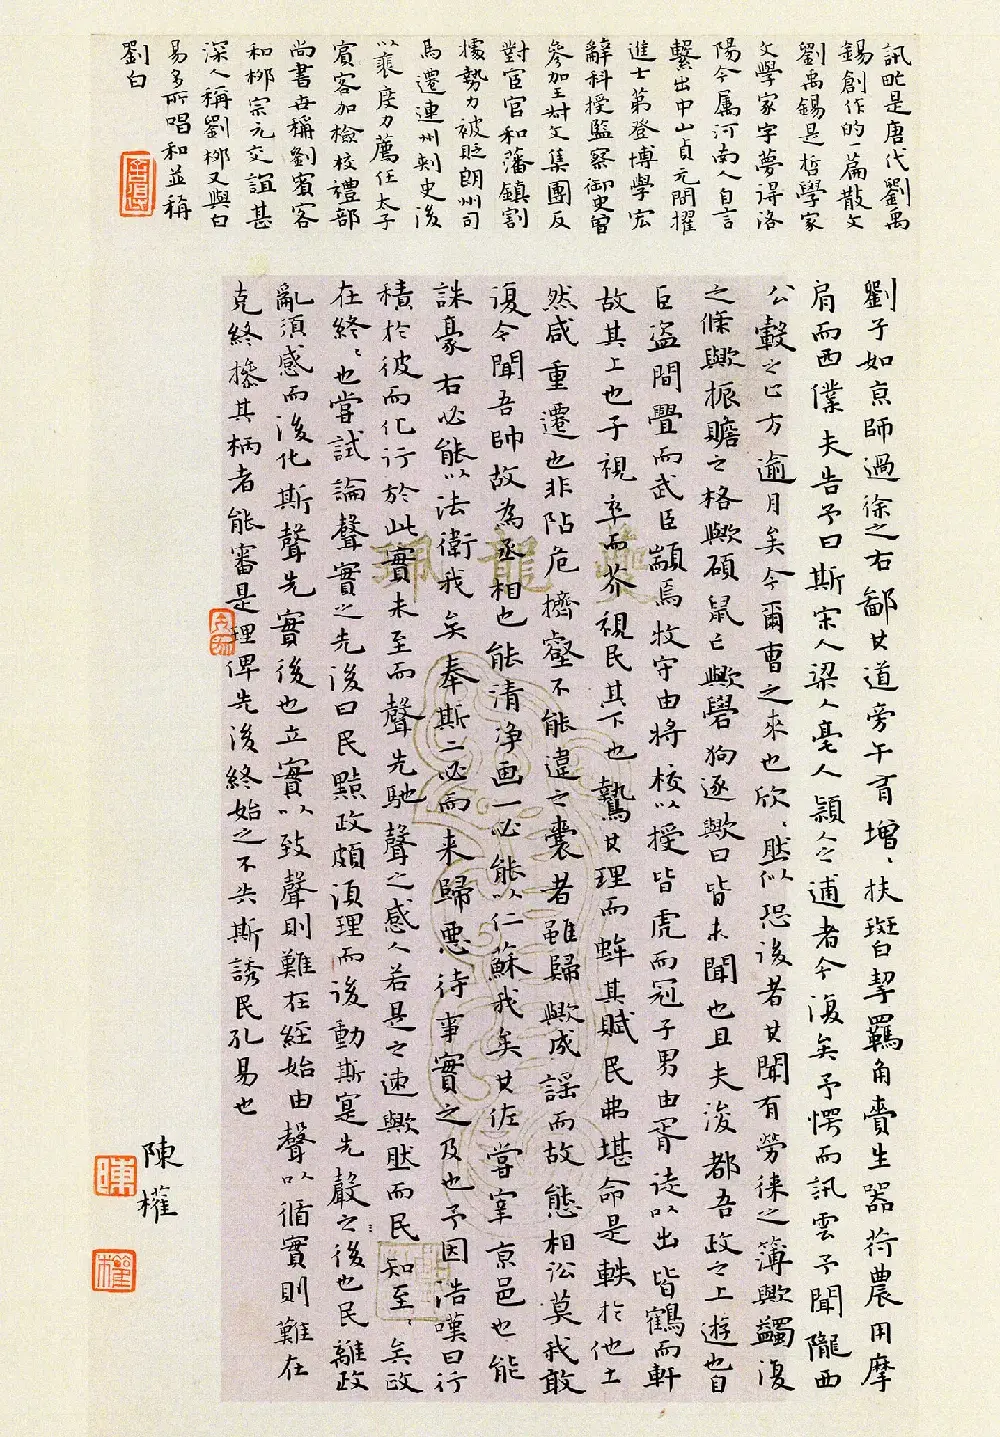 訊甿是唐代劉禹
錫創作的一篇散文
劉禹錫是哲學家
文學家字夢得洛
陽今属河南人自言
繫出中山貞元間擢
進士第登博學宏
辭科授監察御史曾
參加王叔文集團反
對宦官和藩鎮割
據勢力被貶朗州司
馬遷連州刺史後
以裴度力薦任太子
賓客加檢校禮部
尚書世稱劉賓客
和柳宗元交誼甚
深人稱劉柳又與白
易多所唱和並稱
劉白
劉子如京師過徐之右鄙其道旁午有增〻扶斑白挈羈角賫生器荷農用摩
肩而西僕夫告予曰斯宋人梁人亳人潁人之逋者今復矣予愕而訊雲予聞隴西
公轂之止方逾月矣今爾曹之來也欣〻然似恐後者其聞有勞徠之簿歟蠲復
之條歟振贍之格歟碩鼠亡歟瘈狗逐歟曰皆未聞也且夫浚都吾政之上遊也自
巨盜間釁而武臣顓焉牧守由將校以授皆虎而冠子男由胥徒以出皆鶴而軒
故其上也子視卒而芥視民其下也鷙其理而蛑其賦民弗堪命是軼於他土
然咸重遷也非阽危擠壑不能違之曩者雖歸歟成謠而故態相沿莫我敢
復今聞吾帥故為丞相也能清净画一必能以仁蘇我矣其佐嘗宰京邑也能
誅豪右必能以法衛我矣奉斯二必而来歸惡待事實之及也予因浩嘆曰行
積於彼而化行於此實未至而聲先馳聲之感人若是之速歟然而民知至〻矣政
在終〻也嘗試論聲實之先後曰民黠政頗須理而後動斯寔先聲之後也民離政
亂須感而後化斯聲先實後也立實以致聲則難在經始由聲以循實則難在
克終操其柄者能審是理俾先後終始之不失斯誘民孔易也
陳權
陳
權
龍珮